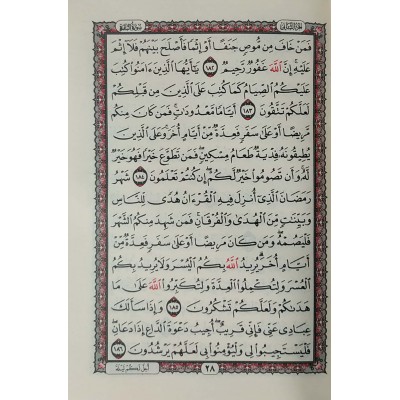 الجزء الثاني سورة البقرة
فَمَنْ خَافَ مِن مُّوصٍ جَنَفًا أَوْ إِثْمًا فَأَصْلَحَ بَيْنَهُمْ فَلَآ إِثْمَ
عَلَيْهِ إِنَّ ٱللَّهَ غَفُورٌ رَّحِيمٌ ١٨٢ يَٰٓأَيُّهَا ٱلَّذِينَ ءَامَنُوا۟ كُتِبَ
عَلَيْكُمُ ٱلصِّيَامُ كَمَا كُتِبَ عَلَى ٱلَّذِينَ مِن قَبْلِكُمْ
لَعَلَّكُمْ تَتَّقُونَ ١٨٣ أَيَّامًا مَّعْدُودَٰتٍ ۚ فَمَن كَانَ مِنكُم
مَّرِيضًا أَوْ عَلَىٰ سَفَرٍ فَعِدَّةٌ مِّنْ أَيَّامٍ أُخَرَ وَعَلَى ٱلَّذِينَ
يُطِيقُونَهُۥ فِدْيَةٌ طَعَامُ مِسْكِينٍ ۖ فَمَن تَطَوَّعَ خَيْرًا فَهُوَ خَيْرٌ
لَّهُۥ وَأَن تَصُومُوا۟ خَيْرٌ لَّكُمْ ۖ إِن كُنتُمْ تَعْلَمُونَ ١٨٤ شَهْرُ
رَمَضَانَ ٱلَّذِىٓ أُنزِلَ فِيهِ ٱلْقُرْءَانُ هُدًى لِّلنَّاسِ
وَبَيِّنَٰتٍ مِّنَ ٱلْهُدَىٰ وَٱلْفُرْقَانِ ۚ فَمَن شَهِدَ مِنكُمُ ٱلشَّهْرَ
فَلْيَصُمْهُ ۖ وَمَن كَانَ مَرِيضًا أَوْ عَلَىٰ سَفَرٍ فَعِدَّةٌ مِّنْ
أَيَّامٍ أُخَرَ ۗ يُرِيدُ ٱللَّهُ بِكُمُ ٱلْيُسْرَ وَلَا يُرِيدُ بِكُمُ
ٱلْعُسْرَ وَلِتُكْمِلُوا۟ ٱلْعِدَّةَ وَلِتُكَبِّرُوا۟ ٱللَّهَ عَلَىٰ مَا
هَدَىٰكُمْ وَلَعَلَّكُمْ تَشْكُرُونَ ١٨٥ وَإِذَا سَأَلَكَ
عِبَادِى عَنِّى فَإِنِّى قَرِيبٌ ۖ أُجِيبُ دَعْوَةَ ٱلدَّاعِ إِذَا دَعَانِ ۖ
فَلْيَسْتَجِيبُوا۟ لِى وَلْيُؤْمِنُوا۟ بِى لَعَلَّهُمْ يَرْشُدُونَ ١٨٦
٢٨ أحل لكم ليلة